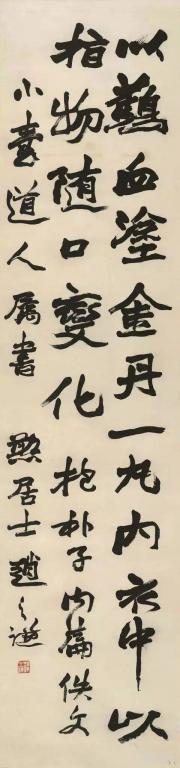 以鷄血塗金丹一丸內衣中以
指物随口變化 抱朴子內篇佚文
小臺道人屬書 憨居士趙之謙